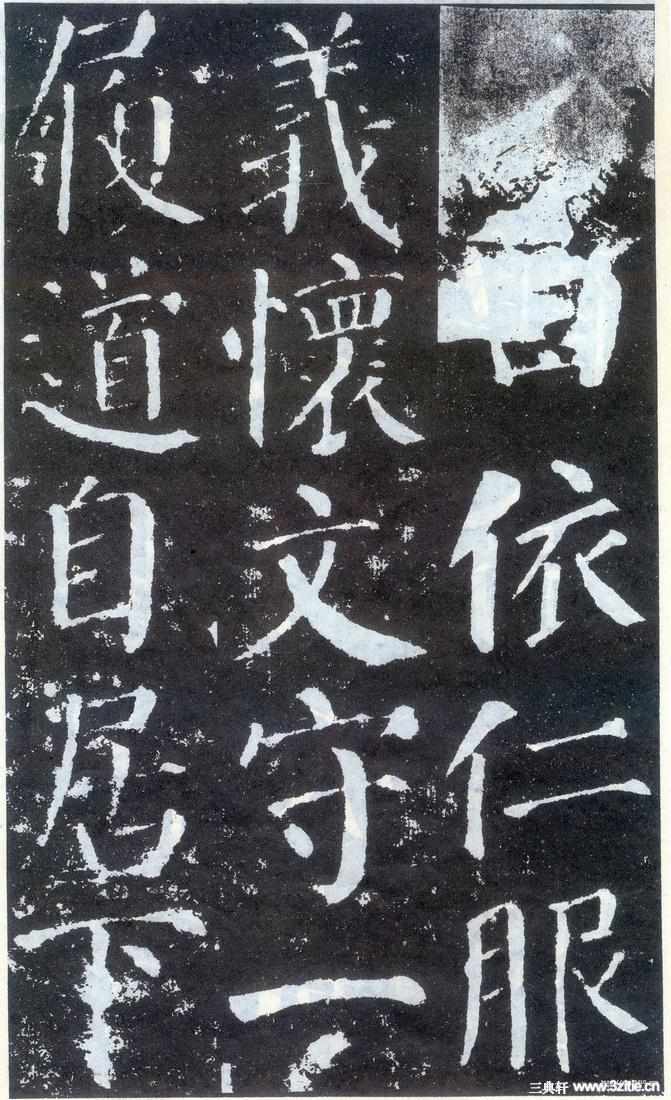 依仁服
義懷文守一
履道自居下
三典轩 www.3zitie.cn